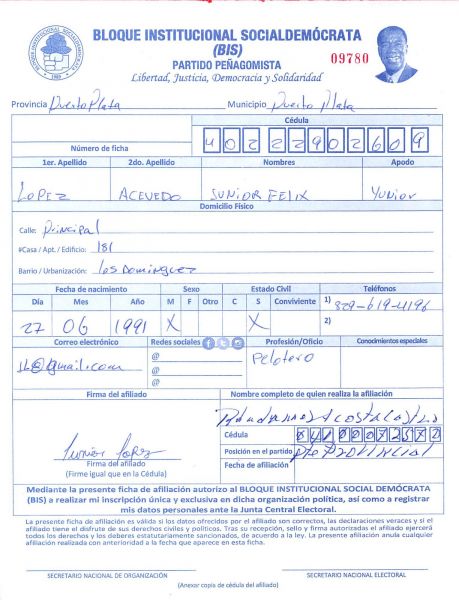 BLOQUE INSTITUCIONAL SOCIALDEMÓCRATA
(BIS)
PARTIDO PEÑAGOMISTA
09780
Libertad, Justicia, Democracia y Solidaridad
Provincia Puerto Plata Municipio Puerto Plata
Cédula
Número de ficha 40222902609
1er. Apellido 2do. Apellido Nombres Apodo
LOPEZ ACEVEDO JUNIOR FELIX YUNIOR
Domicilio Físico
Calle: Principal
#Casa / Apt. / Edificio: 181
Barrio / Urbanización: Los Dominguez
Fecha de nacimiento Sexo Estado Civil Teléfonos
Día Mes Año M F Otro C S Conviviente 1) 829-619-4196
27 06 1991 X X 2)
Correo electrónico Redes sociales Profesión/Oficio Conocimientos especiales
@ Pelotero
JL@gmail.com @
@
Firma del afiliado Nombre completo de quien realiza la afiliación
Acosta
Cédula
Junior Lopez Posición en el partido Pte Provincial
Firma del afiliado Fecha de afiliación:
(Firme igual que en la Cédula)
Mediante la presente ficha de afiliación autorizo al BLOQUE INSTITUCIONAL SOCIAL DEMÓCRATA
(BIS) a realizar mi inscripción única y exclusiva en dicha organización política, así como a registrar
mis datos personales ante la Junta Central Electoral.
La presente ficha de afiliación es válida si los datos ofrecidos por el afiliado son correctos, las declaraciones veraces y si el
afiliado tiene el disfrute de sus derechos civiles y políticos. Tras su recepción, sello y firma autorizadas el afiliado ejercerá
todos los derechos y los deberes estatutariamente sancionados, de acuerdo a la ley. La presente afiliación anula cualquier
afiliación realizada con anterioridad a la fecha que aparece en esta ficha.
SECRETARIO NACIONAL DE ORGANIZACIÓN SECRETARIO NACIONAL ELECTORAL
(Anexar copia de cédula del afiliado)